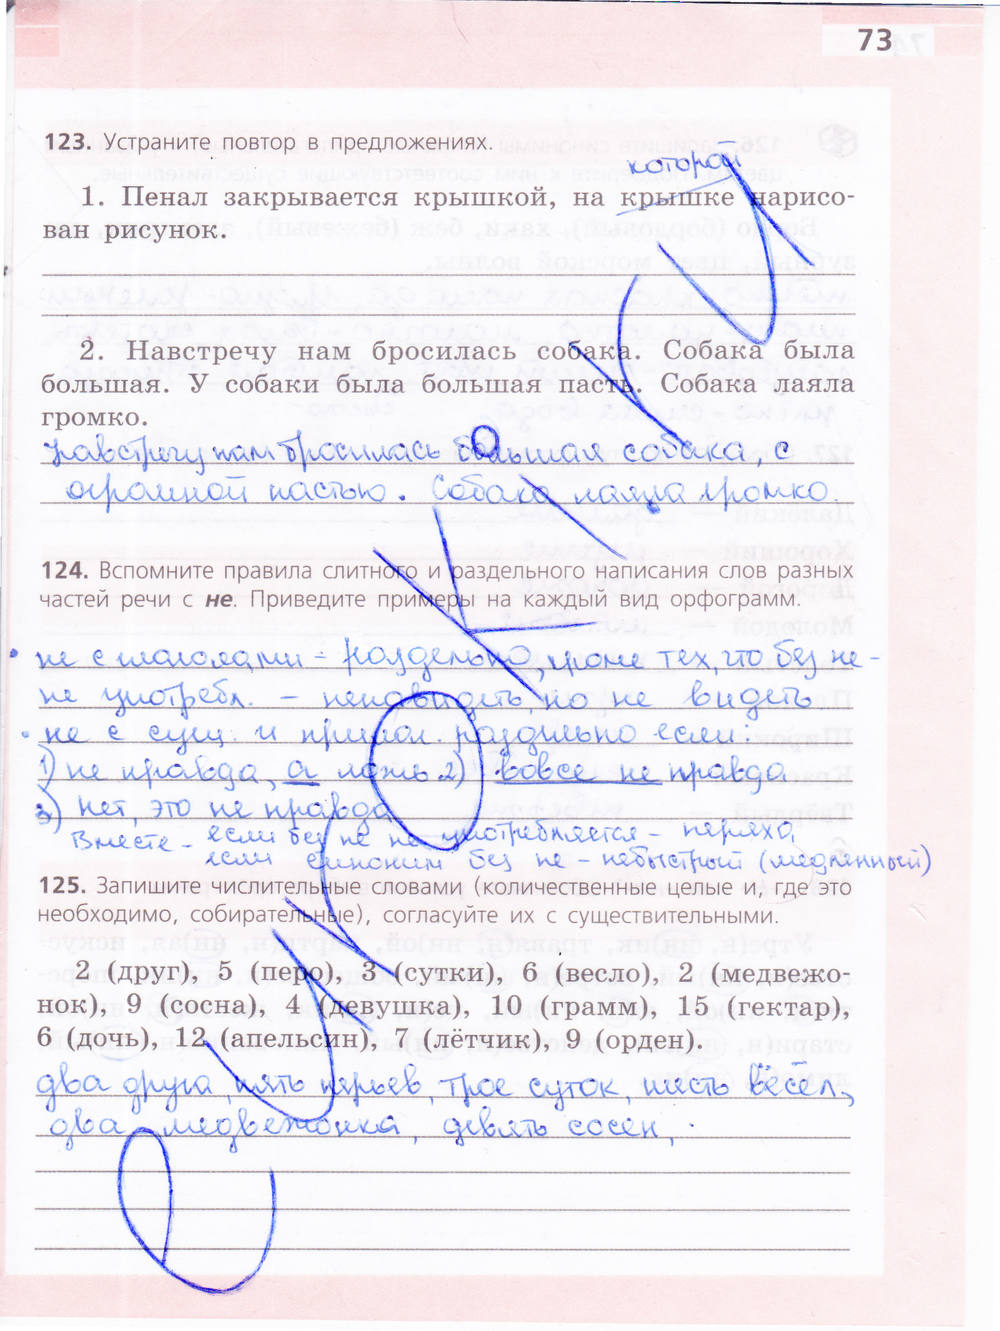 73
123. Устраните повтор в предложениях.
которой
1. Пенал закрывается крышкой, на крышке нарисо-
ван рисунок.
2. Навстречу нам бросилась собака. Собака была
большая. У собаки была большая пасть. Собака лаяла
громко.
Навстречу нам бросилась большая собака, с
огромной пастью. Собака лаяла громко.
124. Вспомните правила слитного и раздельного написания слов разных
частей речи с не. Приведите примеры на каждый вид орфограмм.
• не с глаголами – раздельно, кроме тех, что без не-
не употребл. – ненавидеть, но не видеть
• не с сущ. и прилаг. раздельно если:
1) не правда, а ложь 2) вовсе не правда
3) нет, это не правда
Вместе – если без не не употребляется – неряха,
если синоним без не – небыстрый (медленный)
125. Запишите числительные словами (количественные целые и, где это
необходимо, собирательные), согласуйте их с существительными.
2 (друг), 5 (перо), 3 (сутки), 6 (весло), 2 (медвежо-
нок), 9 (сосна), 4 (девушка), 10 (грамм), 15 (гектар),
6 (дочь), 12 (апельсин), 7 (лётчик), 9 (орден).
два друга, пять перьев, трое суток, шесть вёсел,
два медвежонка, девять сосен,